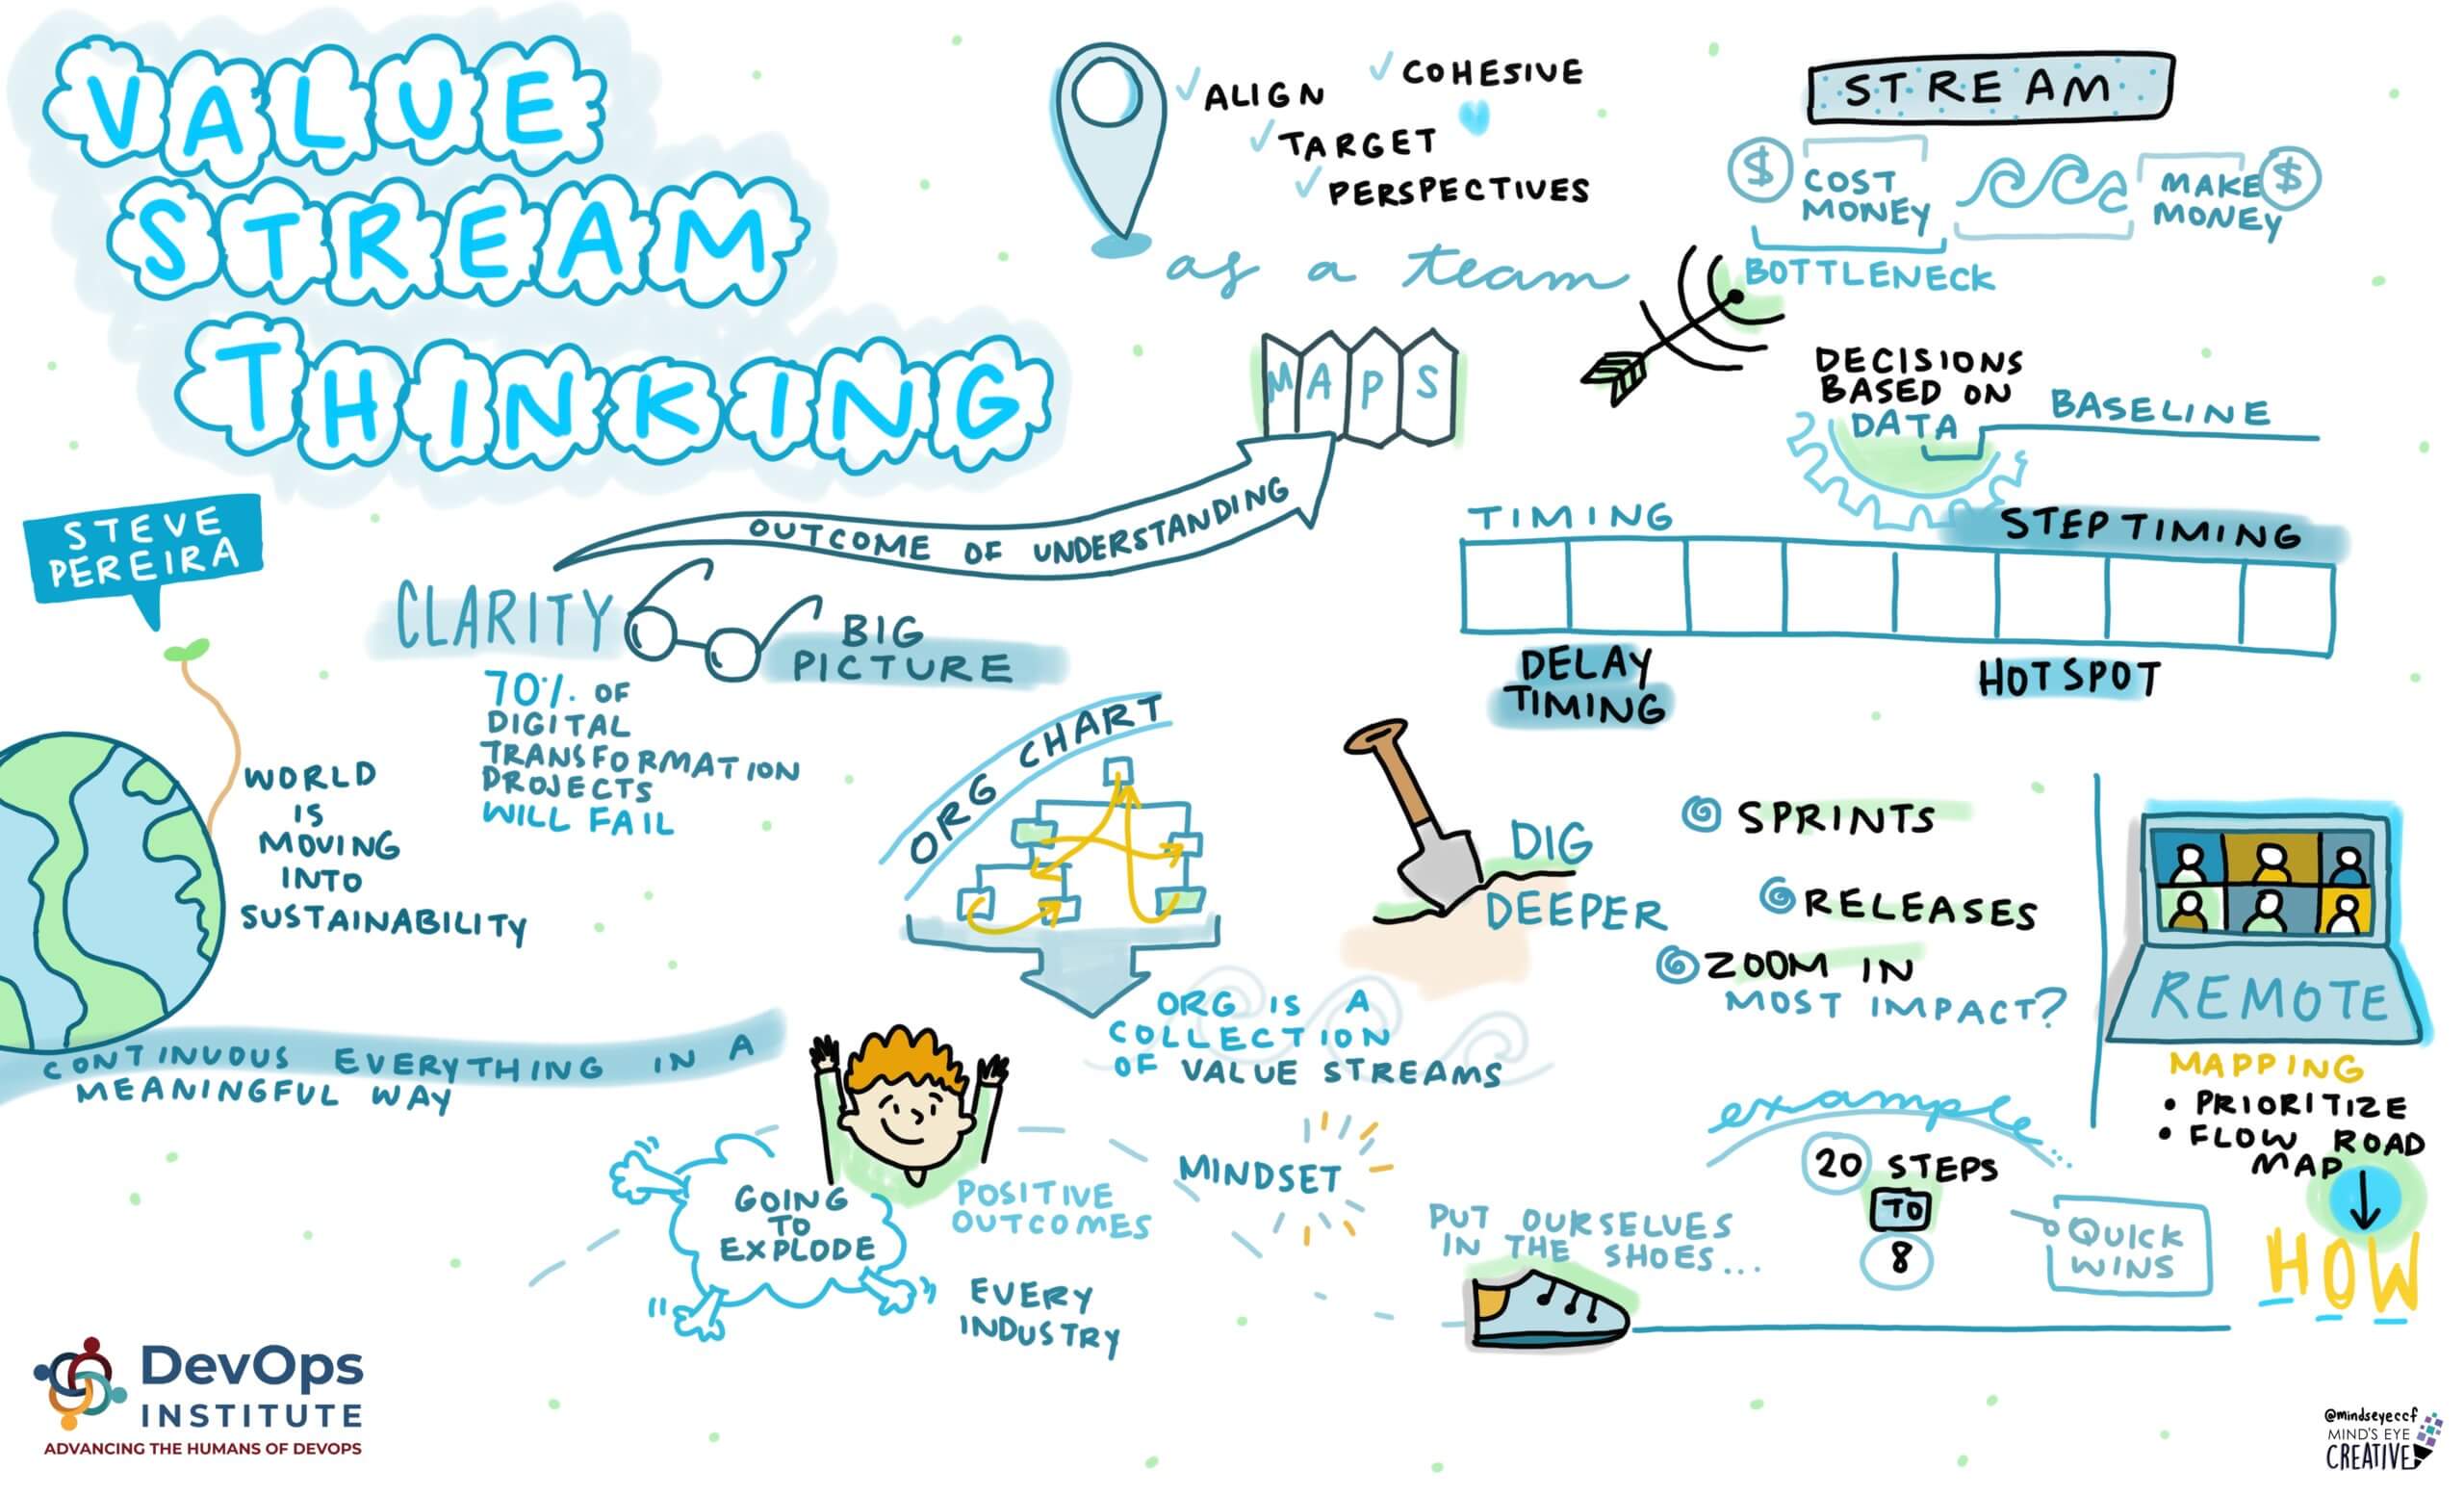 VALUE
STREAM
THINKING
STEVE
PEREIRA
✓ ALIGN
✓ COHESIVE
✓ TARGET
✓ PERSPECTIVES
as a team
MAPS
OUTCOME OF UNDERSTANDING
CLARITY
BIG
PICTURE
70% OF
DIGITAL
TRANSFORMATION
PROJECTS
WILL FAIL
WORLD
IS
MOVING
INTO
SUSTAINABILITY
CONTINUOUS EVERYTHING IN A
MEANINGFUL WAY
STREAM
$ COST
MONEY
MAKE $
MONEY
BOTTLENECK
DECISIONS
BASED ON
DATA
BASELINE
TIMING
STEP TIMING
DELAY
TIMING
HOTSPOT
ORG CHART
ORG IS A
COLLECTION
OF VALUE STREAMS
DIG
DEEPER
SPRINTS
RELEASES
ZOOM IN
MOST IMPACT?
REMOTE
MAPPING
• PRIORITIZE
• FLOW ROAD
MAP
HOW
GOING
TO
EXPLODE
POSITIVE
OUTCOMES
EVERY
INDUSTRY
MINDSET
PUT OURSELVES
IN THE SHOES...
example
20 STEPS
TO
8
QUICK
WINS
DevOps
INSTITUTE
ADVANCING THE HUMANS OF DEVOPS
@mindseyeccf
MIND'S EYE
CREATIVE